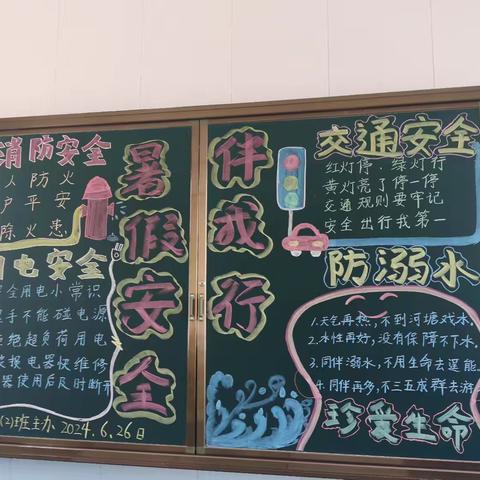 消防安全
人人防火
户平安
除火患
用电安全
安全用电小常识
手不能碰电源
拒绝超负荷用电
装报电器快维修
器使用后及时断开
(2)班主办 2024.6.26日
暑假安全
伴我行
交通安全
红灯停,绿灯行
黄灯亮了停一停
交通规则要牢记
安全出行我第一
防溺水
1.天气再热,不到河塘戏水.
2.水性再好,没有保障不下水.
3.同伴溺水,不用生命去逞能.
4.同伴再多,不三五成群去游
珍爱生命